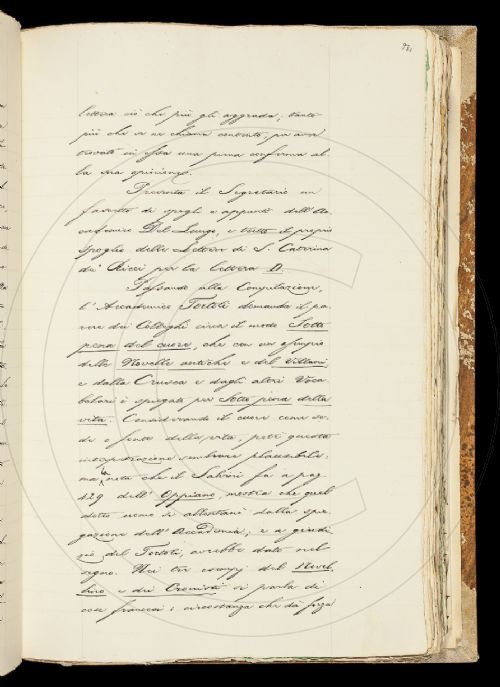 98.
lettera ciò che più gli aggrada; tanto
più che se ne chiama contento, per aver
trovato in essa una prima conferma al-
la sua opinione.
Presenta il Segretario un
fascetto di spogli e appunti dell'Ac-
cademico Del Lungo, e tutto il proprio
spoglio delle Lettere di S. Caterina
de' Ricci per la lettera D.
Passando alla Compilazione,
l'Accademico Tortoli domanda il pa-
rere dei Colleghi circa il modo Sotto
pena del cuore, che con un esempio
delle Novelle antiche e del Villani
e dalla Crusca e dagli altri Voca-
bolari è spiegato per Sotto pena della
vita. Considerando il cuore come se-
de e fonte della vita, potè questa
interpretazione sembrare plausibile:
ma la nota che il Salvini fa a pag.
429 dell' Oppiano, mostra che quel
dotto uomo si allontanò dalla spie-
gazione dell'Accademia; e a giudi-
zio del Tortoli, avrebbe dato nel
segno. Nei tre esempj del Novel-
lino e dei Cronisti si parla di
cose francesi; circostanza che dà forza